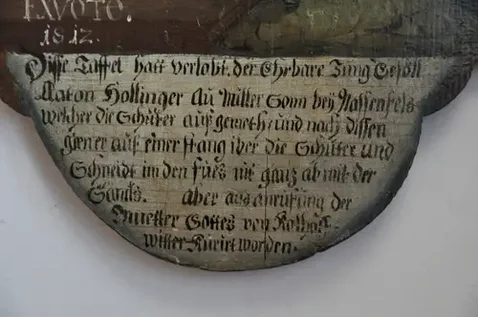 EXVOTO.
1812.
Disse Taffel hatt verlobt. der Ehrbare Jung Gesöll
Anton Hollinger Au Miller Sonn bey Nassenfels
welcher die Schüter auf gemeth und nach dissen
giener auf einer stang iber die Schüter und
Schneidt im den fües nit ganz ab mit der
aber aus anrufung der
Muetter Gottes von
witter Kurirt worden.